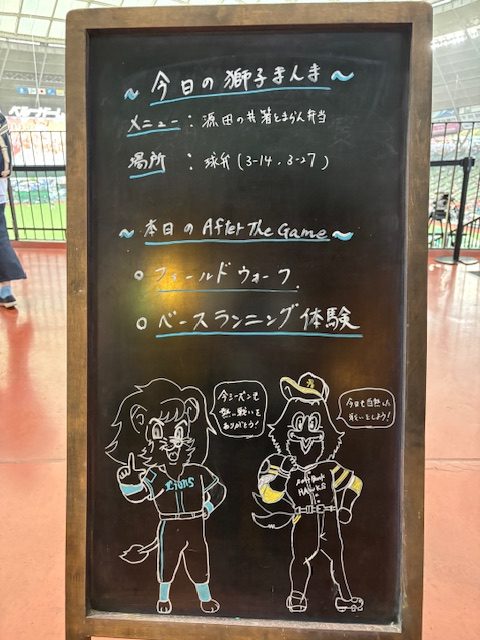 ～今日の獅子まんま～
メニュー：源田の共箸とまらん弁当
場所：球弁(3-14.3-27)
～本日のAfter The Game～
○フィールドウォーク
○ベースランニング体験
今シーズンも
熱い戦いを
ありがとう！
今日も白熱した
戦いをしよう！
Lions
SoftBank
HAWKS